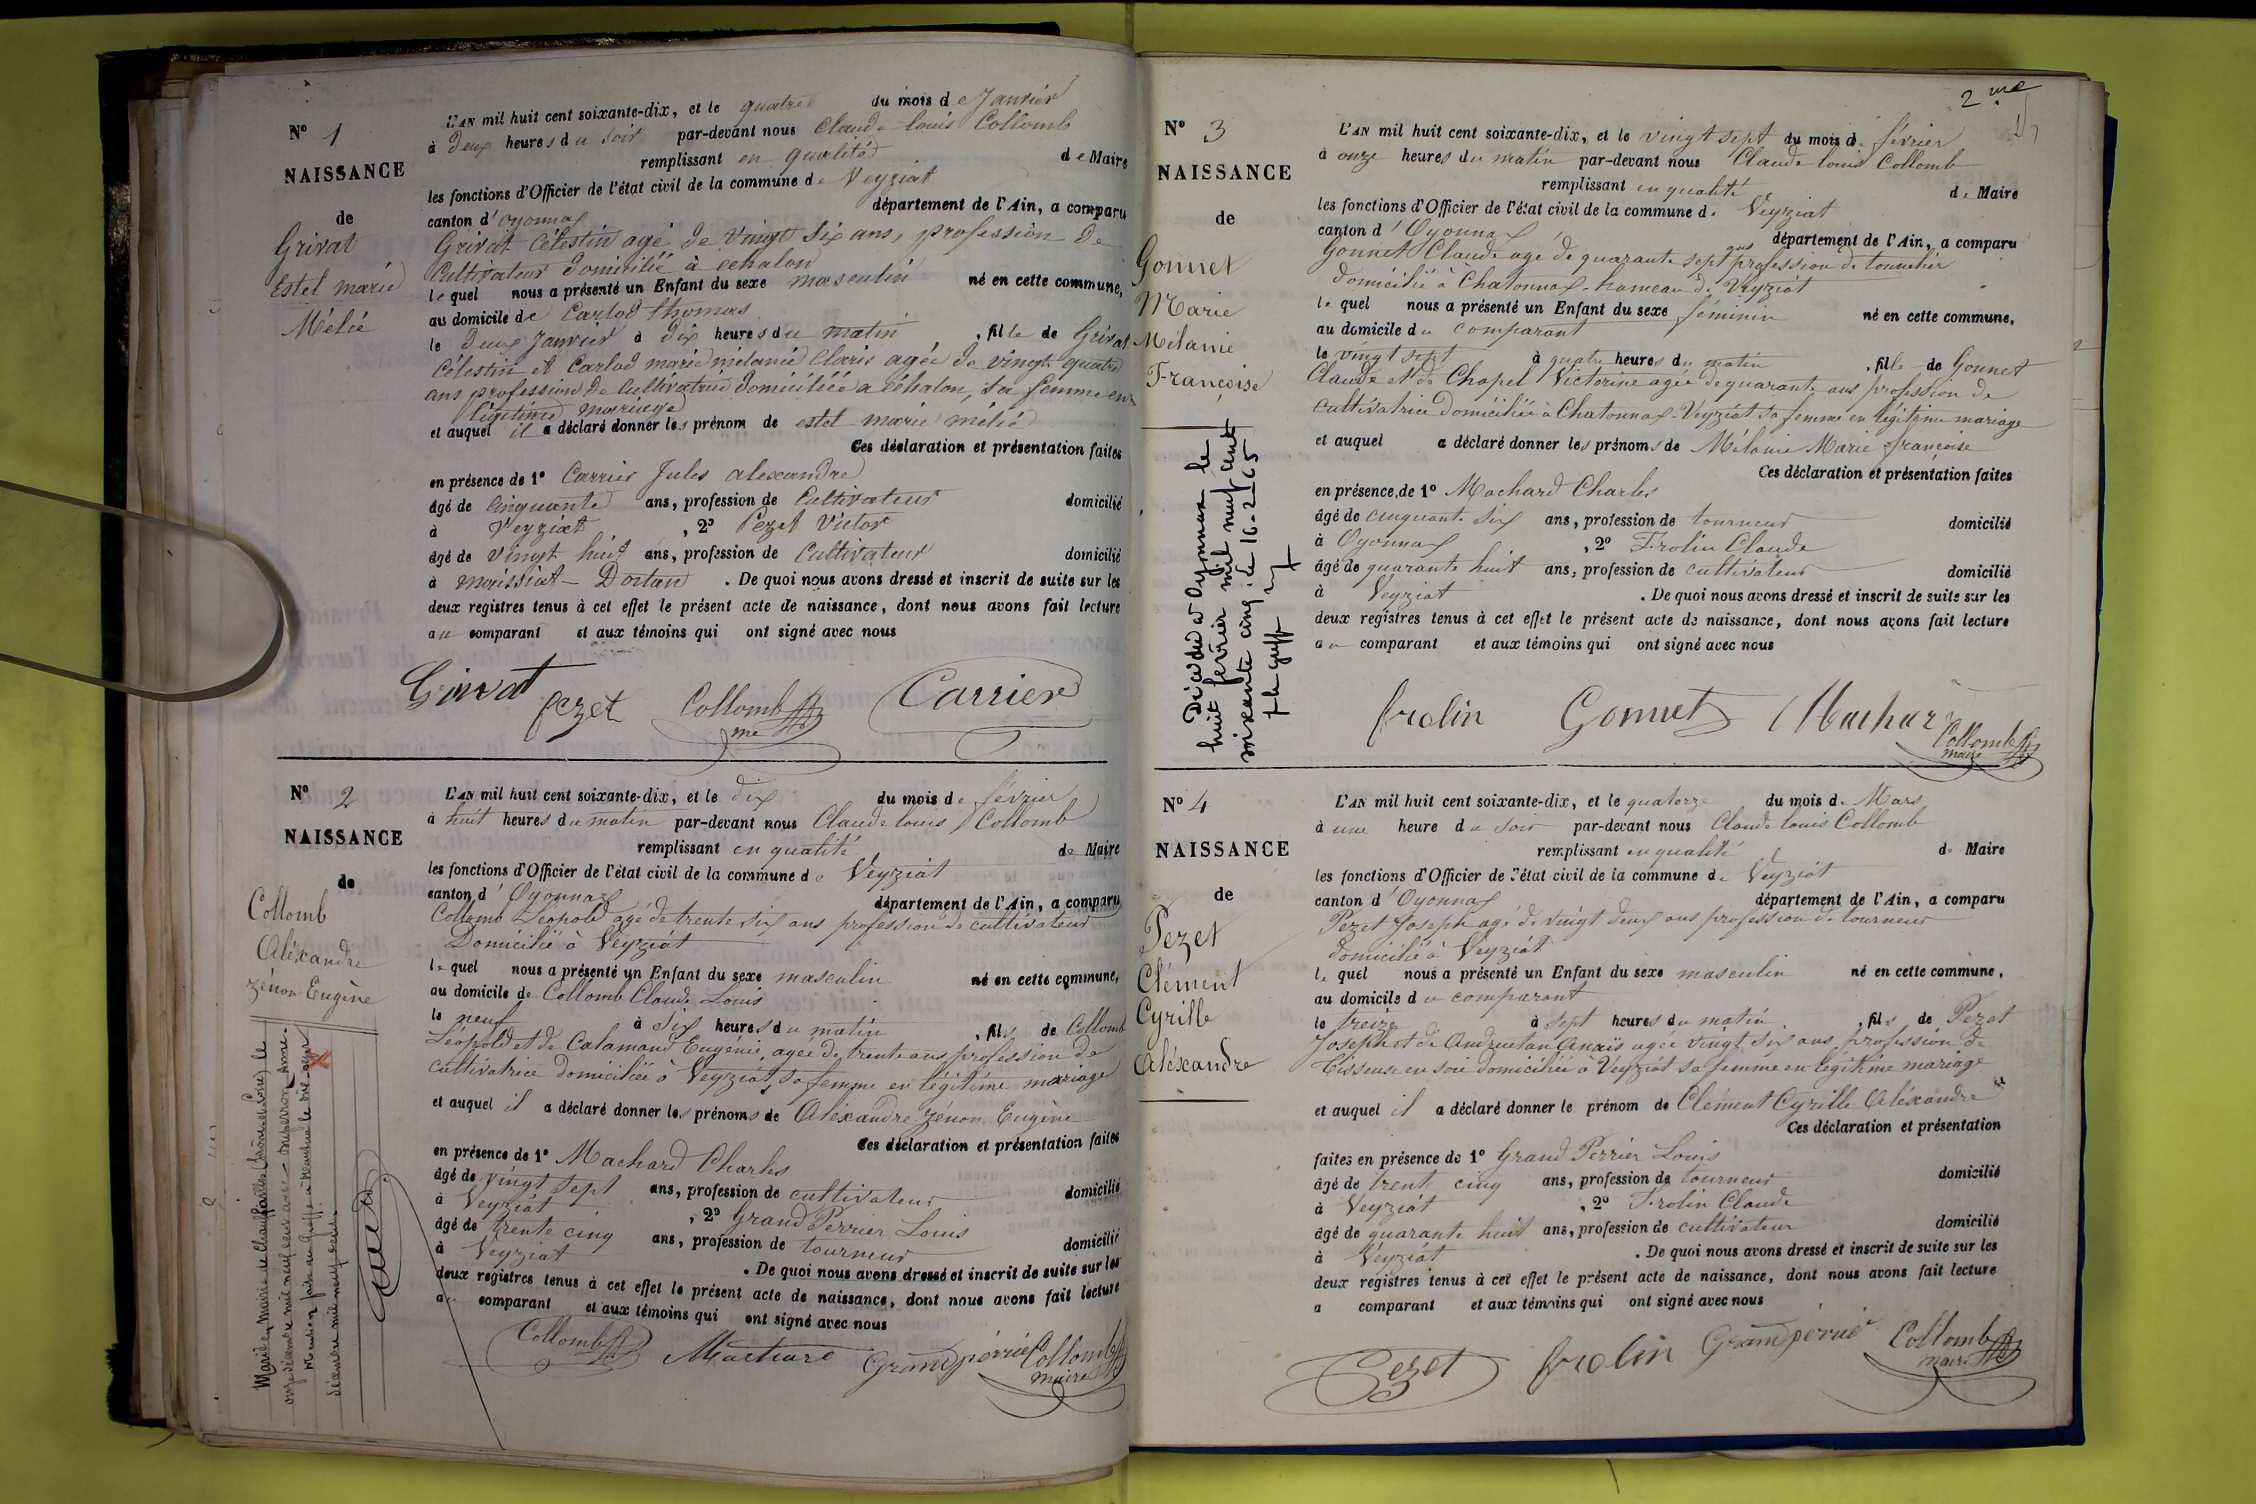 N° 1
NAISSANCE
de
Grivat
Estel marie
Mélie
L'AN mil huit cent soixante-dix, et le quatre du mois de Janvier
à Deux heures du soir par-devant nous Claude louis Collomb
remplissant en qualité de Maire
les fonctions d'Officier de l'état civil de la commune de Veyziat
canton d'oyonnax département de l'Ain, a comparu
Grivat Célestin agé de vingt six ans, profession de
Cultivateur domicilié à echalon
lequel nous a présenté un Enfant du sexe masculin né en cette commune,
au domicile de Carlod thomas
le deux Janvier à dix heures du matin, fille de Grivat
Célestin et Carlod marie mélanie Claris agée de vingt quatre
ans profession de Cultivatrice domiciliée a échalon, sa femme en
légitime mariage
et auquel il a déclaré donner les prénom de estel marie mélie
Ces déclaration et présentation faites
en présence de 1° Carrier Jules alexandre
âgé de Cinquante ans, profession de Cultivateur domicilié
à Veyziat, 2° Pezet Victor
âgé de vingt huit ans, profession de Cultivateur domicilié
à maissiat - Dortan. De quoi nous avons dressé et inscrit de suite sur les
deux registres tenus à cet effet le présent acte de naissance, dont nous avons fait lecture
au comparant et aux témoins qui ont signé avec nous
Grivat pezet Collomb me Carrier
N° 2
NAISSANCE
de
Collomb
Aléxandre
zénon Eugène
L'AN mil huit cent soixante-dix, et le dix du mois de février
à huit heures du matin par-devant nous Claude louis Collomb
remplissant en qualité de Maire
les fonctions d'Officier de l'état civil de la commune de Veyziat
canton d'Oyonnax département de l'Ain, a comparu
Collomb Léopold agé de trente six ans profession de cultivateur
Domicilié à Veyziat
lequel nous a présenté un Enfant du sexe masculin né en cette commune,
au domicile de Collomb Claude Louis
le neuf à six heures du matin, fils de Collomb
Léopold et de Calamand Eugénie, agée de trente ans profession de
cultivatrice domiciliée à Veyziat, sa femme en légitime mariage
et auquel il a déclaré donner les prénoms de Aléxandre Zénon Eugène
Ces déclaration et présentation faites
en présence de 1° Machard Charles
âgé de vingt sept ans, profession de cultivateur domicilié
à Veyziat, 2° Grand Perrier Louis
âgé de trente cinq ans, profession de tourneur domicilié
à Veyziat. De quoi nous avons dressé et inscrit de suite sur les
deux registres tenus à cet effet le présent acte de naissance, dont nous avons fait lecture
au comparant et aux témoins qui ont signé avec nous
Collomb Machard Grandpérrier Collomb maire
Marié en Mairie de Chauffailles (Saône et Loire) le
onze décembre mil neuf cent avec
Mention faite au Greffe à Nantua le
décembre mil neuf cent
2me
N° 3
NAISSANCE
de
Gonnet
Marie
Mélanie
Françoise
Décédée à Oyonnax le
huit février mil neuf cent
soixante cinq, le 16-2-65
p le greff
L'AN mil huit cent soixante-dix, et le vingt sept du mois de février
à onze heures du matin par-devant nous Claude louis Collomb
remplissant en qualité de Maire
les fonctions d'Officier de l'état civil de la commune de Veyziat
canton d'Oyonnax département de l'Ain, a comparu
Gonnet Claude agé de quarante sept ans profession de tonnelier
domicilié à Chatonnax-hameau de Veyziat
lequel nous a présenté un Enfant du sexe féminin né en cette commune,
au domicile du comparant
le vingt sept à quatre heures du matin, fille de Gonnet
Claude et de Chapel Victorine agée de quarante ans profession de
cultivatrice domiciliée à Chatonnax-Veyziat sa femme en légitime mariage
et auquel a déclaré donner les prénoms de Mélanie Marie françoise
Ces déclaration et présentation faites
en présence de 1° Machard Charles
âgé de cinquante six ans, profession de tourneur domicilié
à Oyonnax, 2° Frolin Claude
âgé de quarante huit ans, profession de cultivateur domicilié
à Veyziat. De quoi nous avons dressé et inscrit de suite sur les
deux registres tenus à cet effet le présent acte de naissance, dont nous avons fait lecture
au comparant et aux témoins qui ont signé avec nous
frolin Gonnet Machard Collomb maire
N° 4
NAISSANCE
de
Pezet
Clément
Cyrille
Aléxandre
L'AN mil huit cent soixante-dix, et le quatorze du mois de Mars
à une heure du soir par-devant nous Claude louis Collomb
remplissant en qualité de Maire
les fonctions d'Officier de l'état civil de la commune de Veyziat
canton d'Oyonnax département de l'Ain, a comparu
Pezet Joseph agé de vingt deux ans profession de tourneur
domicilié à Veyziat
lequel nous a présenté un Enfant du sexe masculin né en cette commune,
au domicile du comparant
le treize à sept heures du matin, fils de Pezet
Joseph et de Andruetan Anaïs agée vingt six ans, profession de
tisseuse en soie domiciliée à Veyziat sa femme en légitime mariage
et auquel il a déclaré donner le prénom de Clément Cyrille Aléxandre
Ces déclaration et présentation
faites en présence de 1° Grand Perrier Louis
âgé de trente cinq ans, profession de tourneur domicilié
à Veyziat, 2° Frolin Claude
âgé de quarante huit ans, profession de cultivateur domicilié
à Veyziat. De quoi nous avons dressé et inscrit de suite sur les
deux registres tenus à cet effet le présent acte de naissance, dont nous avons fait lecture
a comparant et aux témoins qui ont signé avec nous
Pezet frolin Grandpérrier Collomb maire